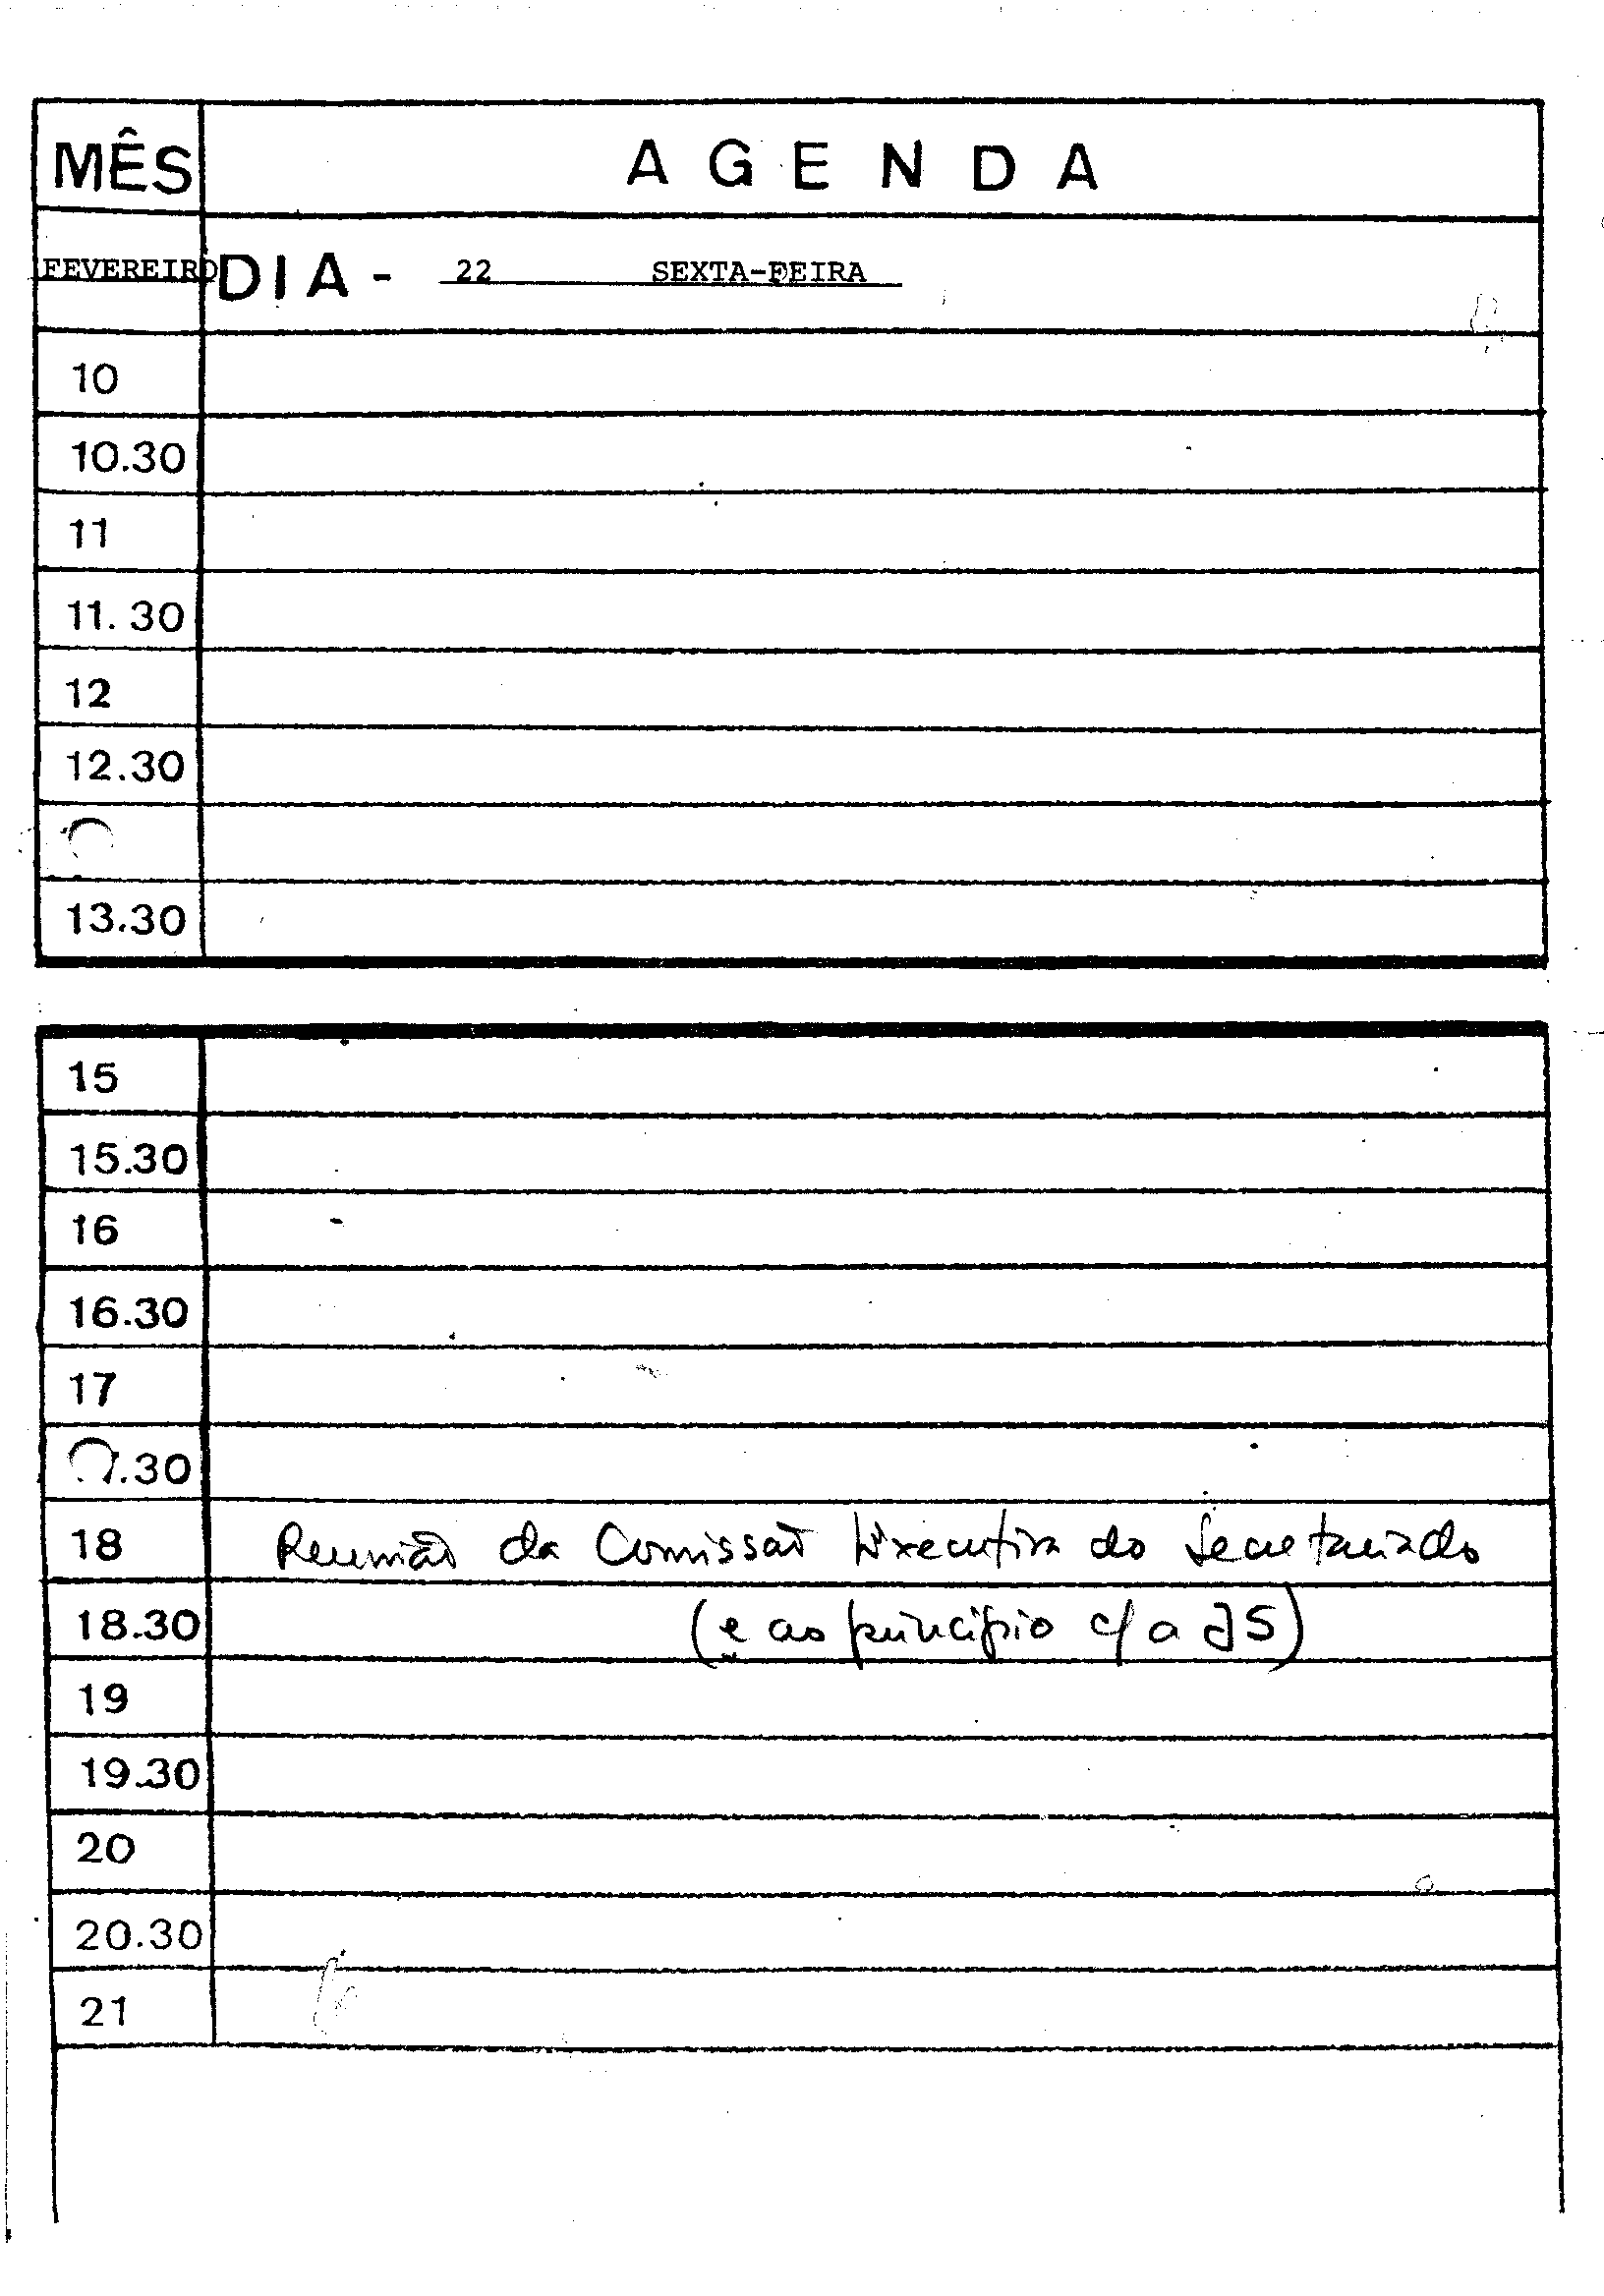 MÊS AGENDA
FEVEREIRO DIA - 22 SEXTA-FEIRA
10
10.30
11
11.30
12
12.30
13.30
15
15.30
16
16.30
17
.30
18 Reunião da Comissão Executiva do Secretariado
18.30 (e ao princípio c/ a JS)
19
19.30
20
20.30
21